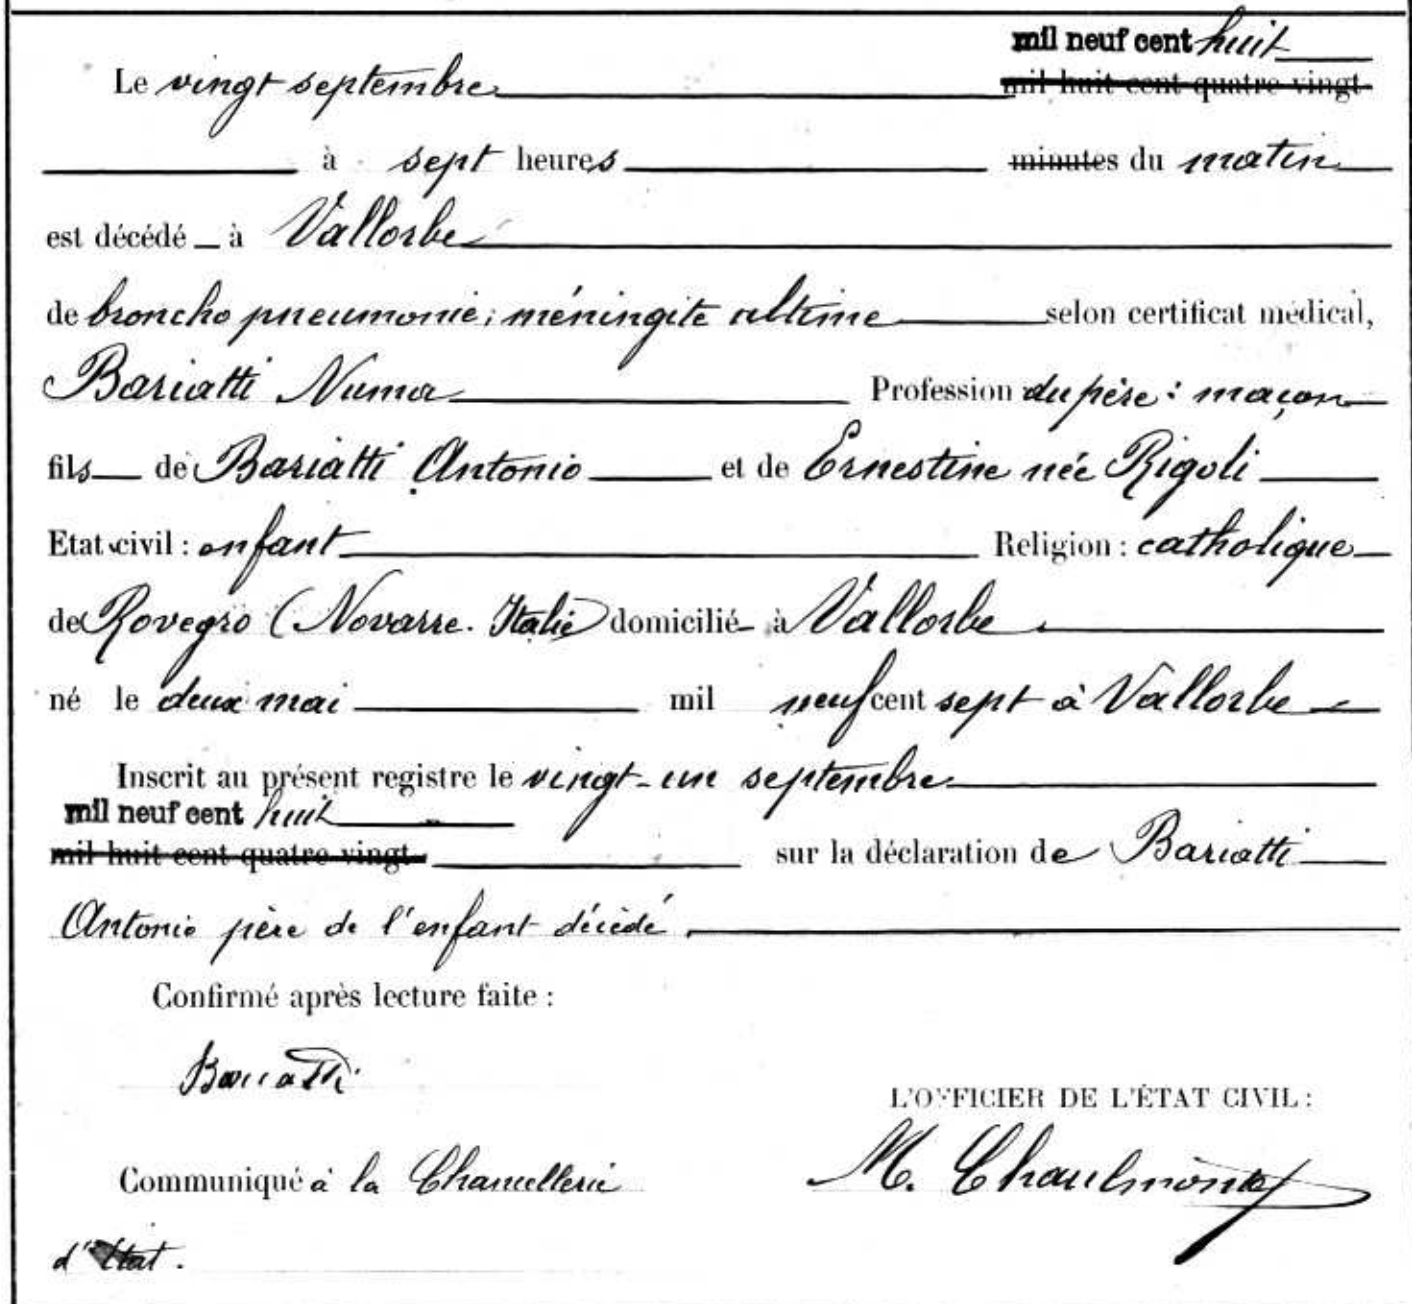 mil neuf cent huit
Le vingt septembre mil huit cent quatre vingt
à sept heures minutes du matin
est décédé à Vallorbe
de broncho pneumonie, méningite ultime selon certificat médical,
Bariatti Numa Profession du père : maçon
fils de Bariatti Antonio et de Ernestine née Rigoli
Etat civil : enfant Religion : catholique
de Rovegro (Novarre. Italie) domicilié à Vallorbe
né le deux mai mil neuf cent sept à Vallorbe
Inscrit au présent registre le vingt-un septembre
mil neuf cent huit
mil huit cent quatre vingt sur la déclaration de Bariatti
Antonio père de l'enfant décédé
Confirmé après lecture faite :
Bariatti
L'OFFICIER DE L'ÉTAT CIVIL :
M. 
Communiqué à la Chancellerie
d'Etat.